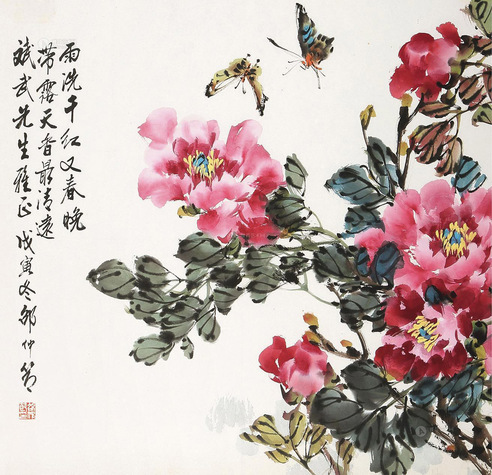 雨洗千红又春晚
带露天香最清遠
斌武先生雅正 戊寅冬邹仲